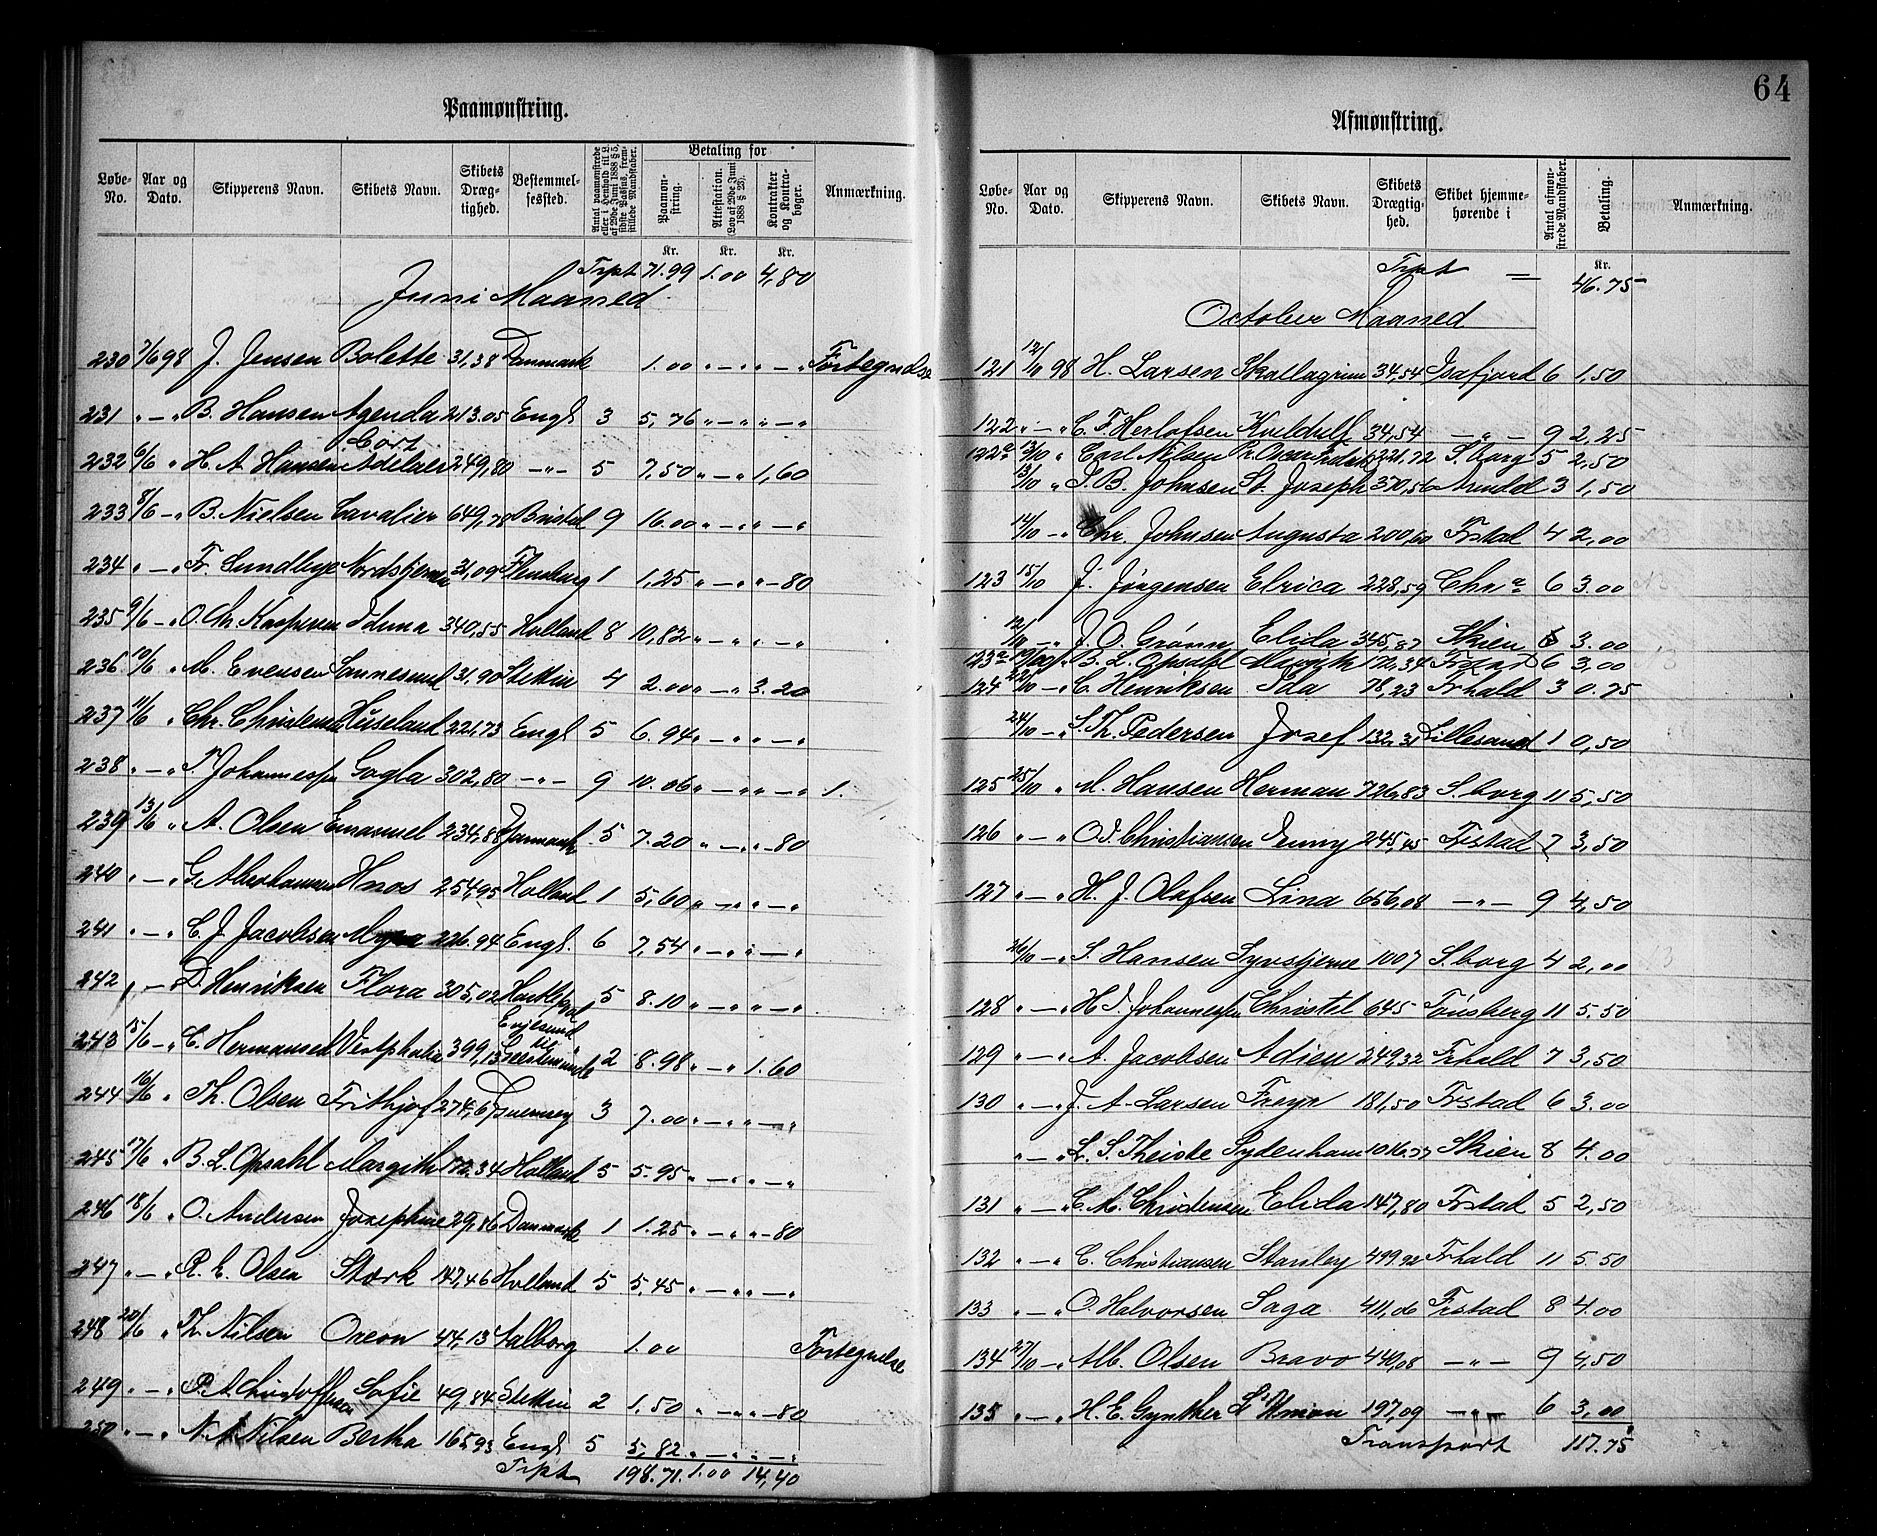 Paamønstring.
Løbe-No. Aar og Dato. Skipperens Navn. Skibets Navn. Skibets Dræg-tighed. Bestemmel-sessted. Antal paamønstrede eller i Henhold til L. af 29de Juni 1888 § 5, sidste Passus, frem-stillede Mandskaber. Betaling for Paamøn-string. Attestation. (Lov af 29de Juni 1888 § 25). Kontrakter og Kontra-bøger. Anmærkning.
Kr. Kr. Kr.
Trpt 71.99 1.00 4,80
Juni Maaned
230 7/6 98 J. Jensen Bolette 31,38 Danmark 1.00 „ — „ „ — „ Fortegnelse
231 „ — „ B. Hansen Agenda 213.05 Engl 3 5,76 „ — „ „ — „
232 6/6 „ H. A. Hansen Cort Adelaer 249,80 — „ — 5 7,50 „ — „ 1,60
233 8/6 — „ B. Nielsen Cavalier 649,78 Bristol 9 16.00 „ — „ „ — „
234 „ — „ Fr. Lundbye Nordstjernen 31,09 Flensburg 1 1,25 „ — „ — 80
235 9/6 — „ O. Chr. Kaspersen Iduna 340,55 Holland 8 10,82 „ — „ „ — „
236 10/6 „ M. Evensen Sannesund 31.90 Stettin 4 2.00 „ — „ 3.20
237 11/6 „ Chr. Christensen Huseland 221,73 Engl 5 6.94 „ — „ „ — „
238 „ — „ T. Johannessen Gogla 302,80 — „ — 9 10.06 „ — „ „ — „ 1.
239 13/6 „ A. Olsen Emanuel 234,88 Danmark 5 7.20 „ — „ — 80
240 „ — „ G. Abrahamsen Hnos 254,95 Holland 1 5,60 „ — „ „ — „
241 „ — „ C. J. Jacobsen Myra 226.94 Engl. 6 7,54 „ — „ „ — „
242 „ — D. Henriksen Flora 305,02 Hartlepool 5 8.10 „ — „ „ — „
243 15/6 — „ C. Hermansen Vestphalia 399,13 Engesund til Geestemünde 2 8.98 „ — „ 1.60
244 16/6 „ Th. Olsen Frithjof 274,67 Guernsey 3 7.00 „ — „ „ — „
245 17/6 „ B. L. Opsahl Margith 172.34 Holland 5 5.95 „ — „ „ — „
246 18/6 „ O. Andersen Josephine 29,86 Danmark 1 1.25 „ — „ „ — 80
247 „ — „ R. E. Olsen Stærk 147,46 Holland 5 5,45 „ — „ „ — „
248 20/6 „ Th. Nilsen Oreon 44,15 Aalborg 1.00 Fortegnelse
249 „ — „ P. A. Christoffersen Sofie 49,84 Stettin 2 1.50 „ — „ „ — 80
250 „ — „ N. A. Nilsen Bertha 165,93 Engl 5 5,82 „ — „ „ — „
Trpt 198.71. 1.00 14,40
64
Afmønstring.
Løbe-No. Aar og Dato. Skipperens Navn. Skibets Navn. Skibets Drægtig-hed. Skibet hjemme-hørende i Antal afmøn-strede Mandskaber. Betaling. Anmærkning.
Kr.
Trpt = 46.75
October Maaned
121 12/10 98 H. Larsen Skallagrim 34,54 Isafjord 6 1,50
122 „ — „ C. F. Herlofsen Kveldulf 34,54 — „ — 9 2,25
122a 13/10 „ Carl Nilsen Pr. Oscar 221,72 S.borg 5 2,50
13/10 „ J. B. Johnsen St. Joseph 370,56 Arendal 3 1,50
14/10 — „ Chr. Johnsen Augusta 200,60 Frstad 4 2,00
123 15/10 J. Jørgensen Elrica 228,59 Chr a 6 3.00
12/10 — „ J. O. Grønn Elida 345,87 Skien 6 3.00
123a 19/10 „ B. L. Opsahl Margith 172,34 Frstad 6 3,00
124 22/10 — „ C. Henriksen Ida 78,23 Frhald 3 0.75
24/10 — „ S. Th. Pedersen Josef 132,31 Lillesand 1 0,50
125 25/10 „ M. Hansen Herman 726,83 S.borg 11 5,50
126 „ — „ O. J. Christiansen Jenny 245,45 Frstad 7 3,50
127 „ — „ H. J. Olafsen Lina 656,08 — „ — 9 4,50
26/10 — „ S. Hansen Syvstjerne 1007 S.borg 4 2,00
128 „ — „ H. J. Johannessen Christel 645 Tønsberg 11 5.50
129 „ — „ A. Jacobsen Adien 249,32 Frhald 7 3,50
130 „ — „ J. A. Larsen Freyr 181,50 Frstad 6 3.00
„ — „ L. S. Theiste Sydenham 1016.77 Skien 8 4.00
131 „ — „ C. A. Christensen Elida 147,80 Frstad 5 2,50
132 „ — „ C. Christiansen Stanley 499,92 Frhald 11 5.50
133 „ — „ O. Halvorsen Saga 411,06 Frstad 8 4.00
134 27/10 — „ Alb. Olsen Bravo 440,08 — „ — 9 4,50
135 „ — „ H. E. Gynther Union 197,09 — „ — 6 3,00
Transport 117.75